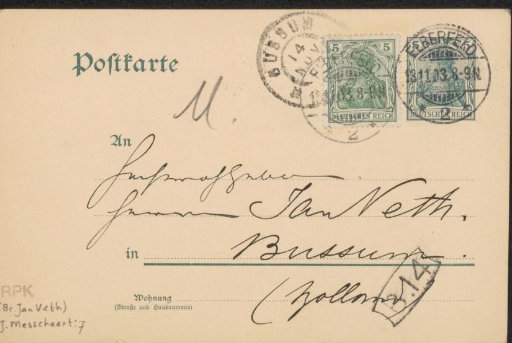 Postkarte
BUSSUM
14 NOV
5
DEUTSCHES REICH
ELBERFELD
13.11.03. 8-9N.
2
DEUTSCHES REICH
M.
An
Hochwohlgeboren
Herrn Jan Veth.
in Bussum.
(Holland)
2.14
Wohnung
(Straße und Hausnummer)
RPK
(Br. Jan Veth)
J. Messchaert: 7